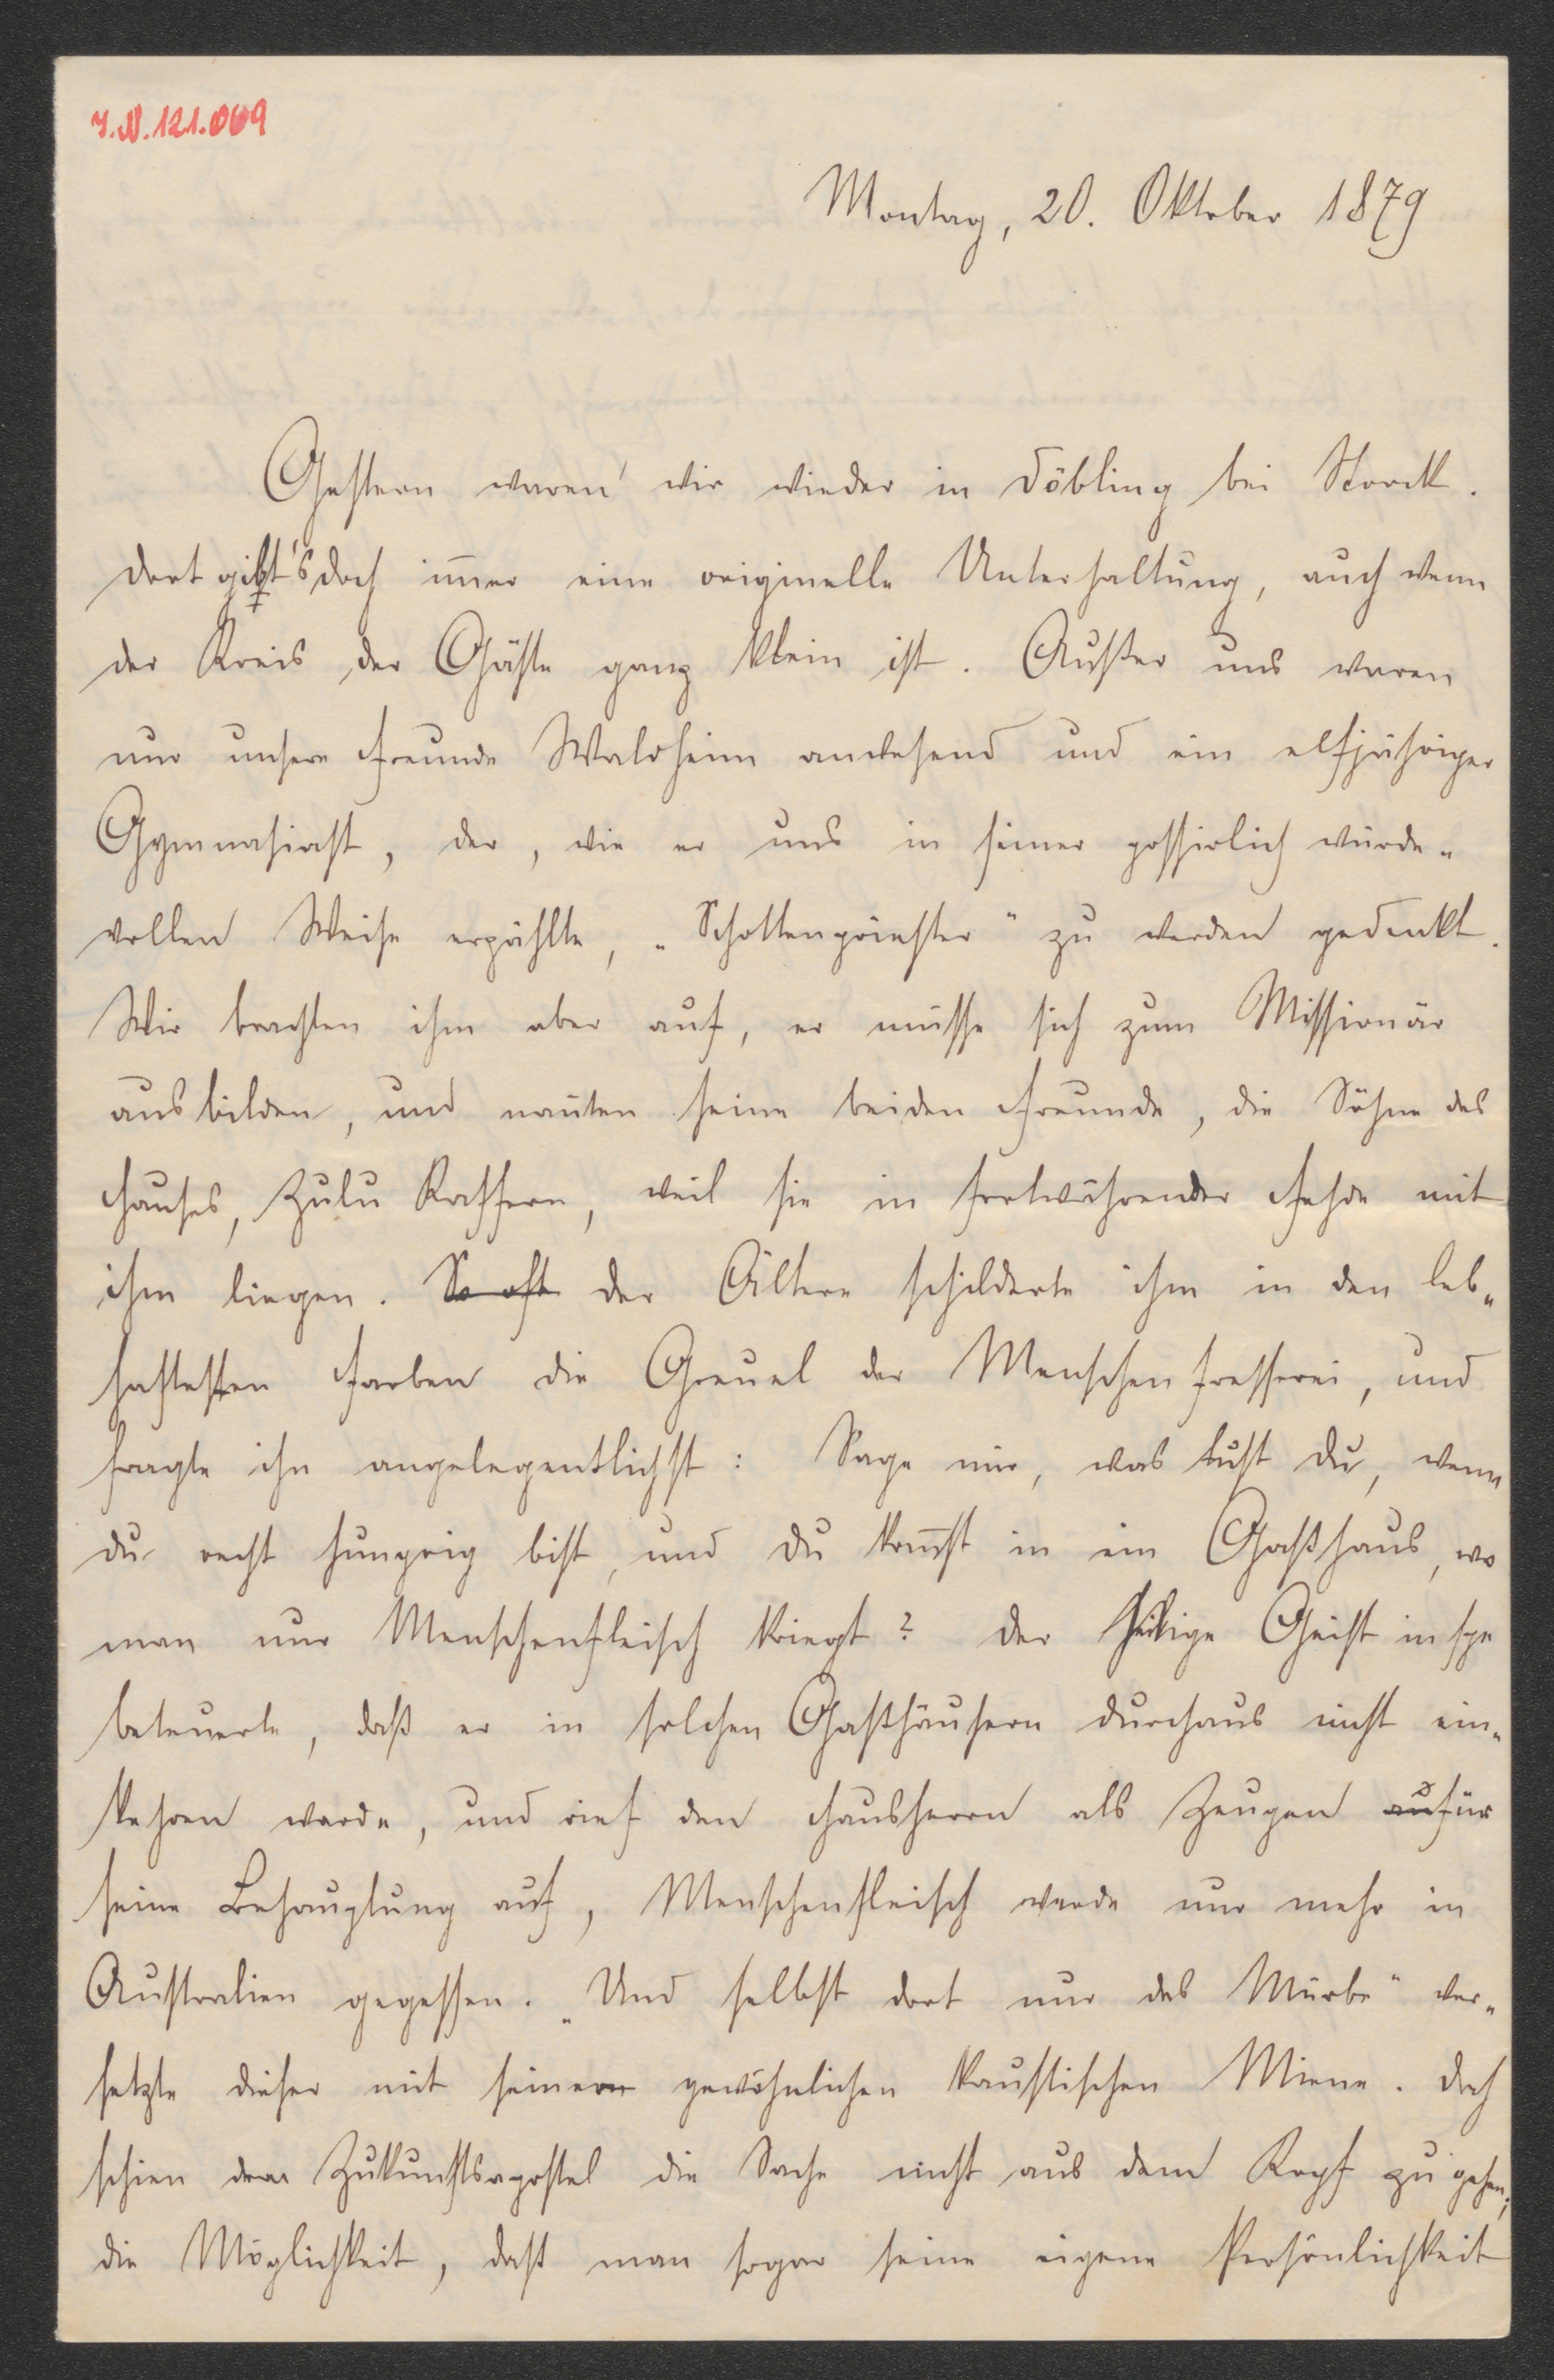 J.N. 121.069
Montag, 20. Oktober 1879
Gestern waren wir wieder in Döbling bei Storck.
Dort gibt's doch im̅er eine originelle Unterhaltung, auch wenn
der Kreis der Gäste ganz klein ist. Außer uns waren
nur unsere Freunde Waldheim anwesend und ein elfjähriger
Gymnasiast, der, wie er uns in seiner possirlich würde-
vollen Weise erzählte, „Schottenpriester" zu werden gedenkt.
Wir brachten ihm aber auf, er müsse sich zum Missionär
ausbilden, und nan̅ten seine beiden Freunde, die Söhne des
Hauses, Zulu Kaffern, weil sie in fortwährender Fehde mit
ihm liegen. So oft der Ältere schilderte ihm in den leb-
haftesten Farben die Greuel der Menschenfresserei, und
fragte ihn angelegentlichst: Sage mir, was tust du, wenn
du recht hungrig bist, und du kom̅st in ein Gasthaus, wo
man nur Menschenfleisch kriegt? Der heilige Geist in spe
beteuerte, daß er in solchen Gasthäusern durchaus nicht ein-
kehren werde, und rief den Hausherrn als Zeugen auf für
seine Behauptung auf, Menschenfleisch werde nur mehr in
Australien gegessen. „Und selbst dort nur das Mürbe" ver-
setzte dieser mit seiner gewöhnlichen kaustischen Miene. Doch
schien dem Zukunftsapostel die Sache nicht aus dem Kopf zu gehen;
die Möglichkeit, daß man sogar seine eigene Persönlichkeit